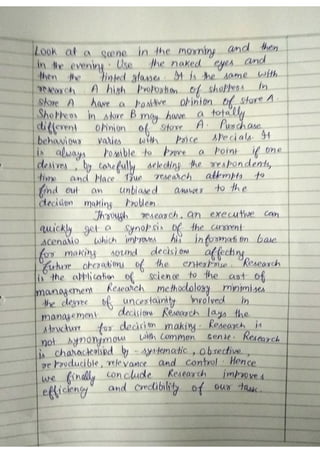 Look at a scene in the morning and then
in the evening. Use the naked eyes and
then the tinted glasses. It is the same with
research A high Proportion of shoppers In
store A have a positive opinion of store A.
Shoppers in store B may have a totally
different opinion of store A. Purchase
behaviour varies with price specials. It
is always Possible to Prove a Point if one
desires, by carefully selecting the respondents,
time and Place True research attempts to
find out an unbiased answer to the
decision making Problem
Through research, an executive can
quickly get a synopsis of the current
scenario which improves his information base
for making sound decision affecting
future operations of the enterprise. Research
is the application of science to the art of
management Research methodology minimises
the degree of uncertainity involved in
management decisions Research lays the
structure for decision making. Research is
not synonymous with common sense. Research
is characterised by - systematic, objective,
reproducible, relevance and control. Hence
we finally conclude Research improves
efficiency and credibility of our task.